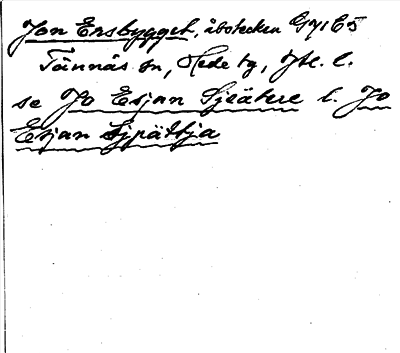 Jon Ersbygget, åbotecken G41C5
Tännäs sn, Hede tg, Jtl. l.
se Jo Esjan Sjpätere l. Jo
Esjan Sjpättja